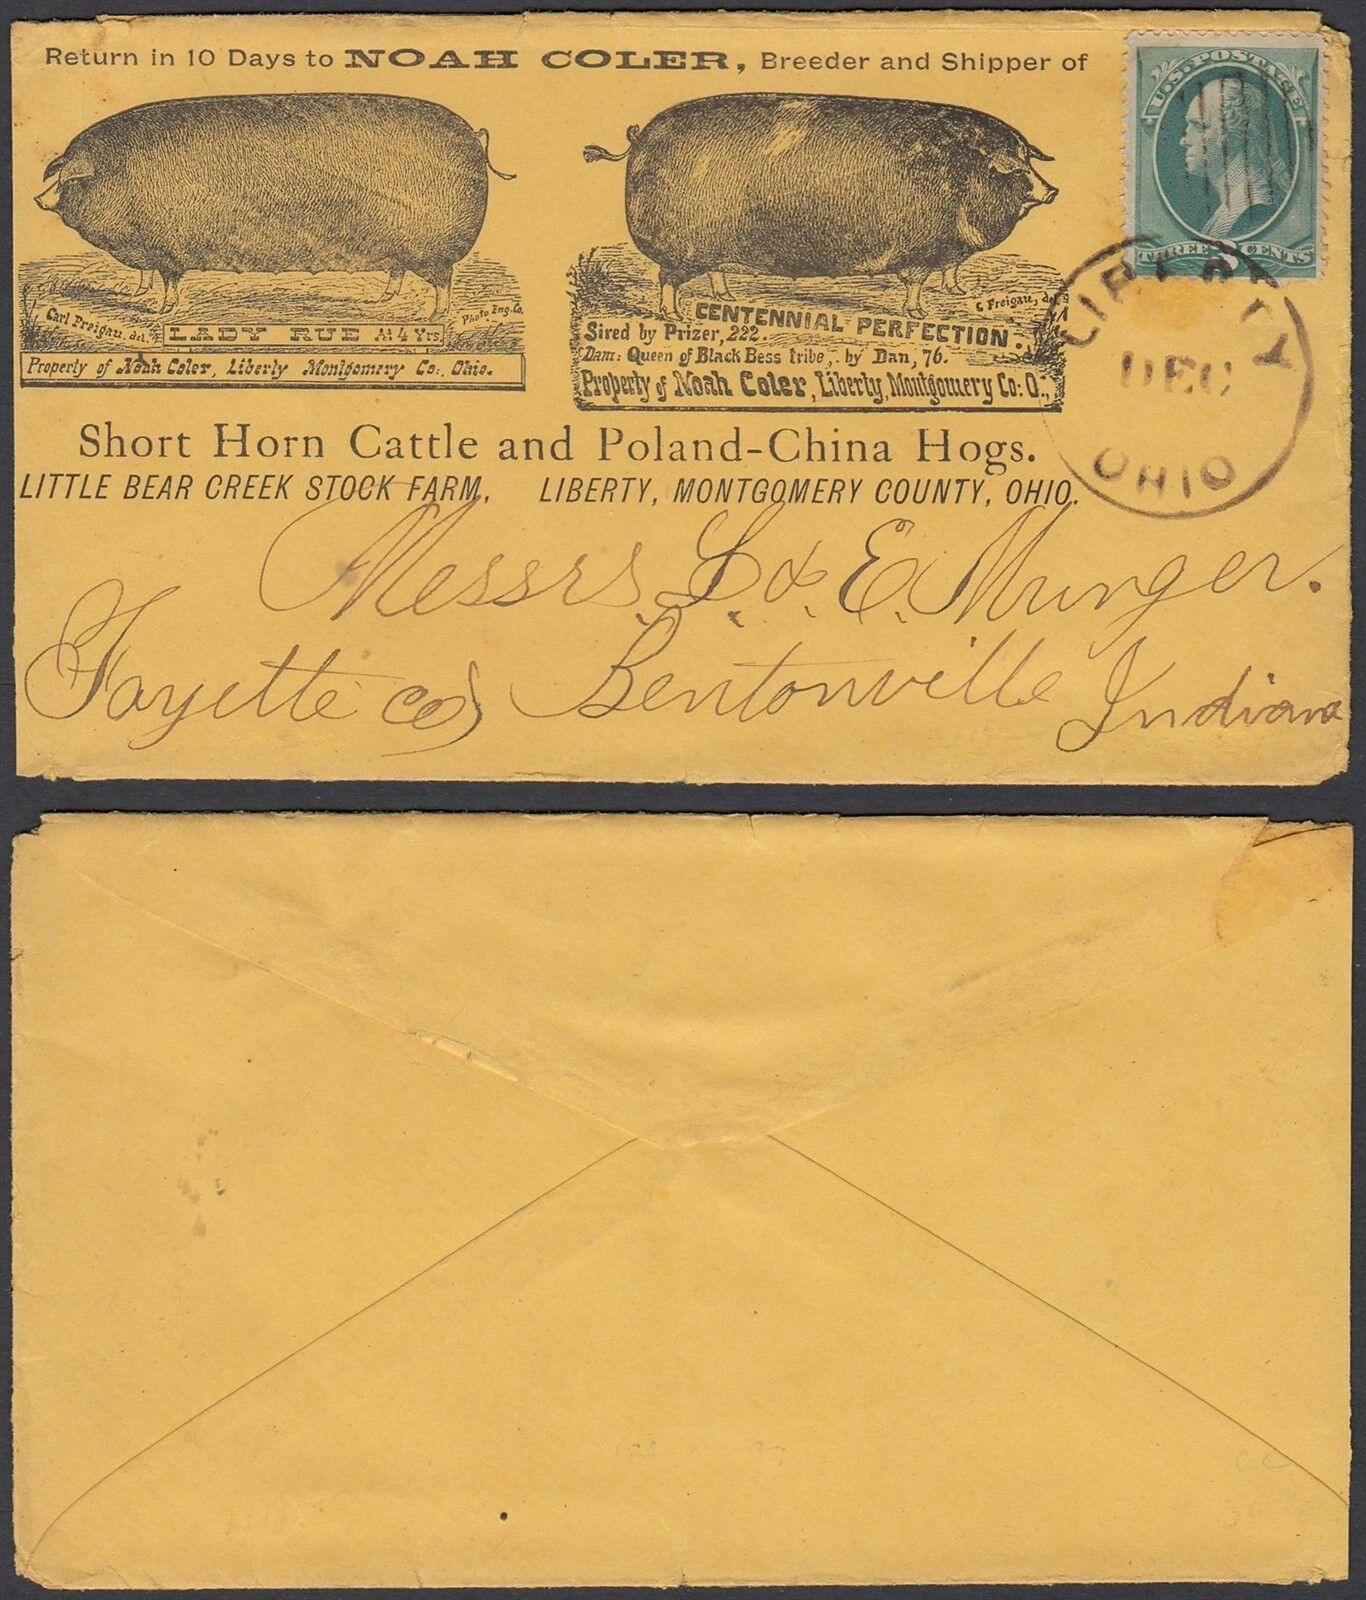 Return in 10 Days to NOAH COLER, Breeder and Shipper of
U.S. POSTAGE
THREE 3 CENTS
LIBERTY
DEC
OHIO
Carl Freigau, del.
LADY RUE At 4 Yrs.
Photo Eng. Co.
Property of Noah Coler, Liberty Montgomery Co:, Ohio.
C Freigau, del
CENTENNIAL PERFECTION.
Sired by Prizer, 222.
Dam: Queen of Black Bess tribe, by Dan, 76.
Property of Noah Coler, Liberty, Montgomery Co: O.;
Short Horn Cattle and Poland-China Hogs.
LITTLE BEAR CREEK STOCK FARM, LIBERTY, MONTGOMERY COUNTY, OHIO.
Messrs. L. & E. Munger.
Fayette co Bentonville Indiana